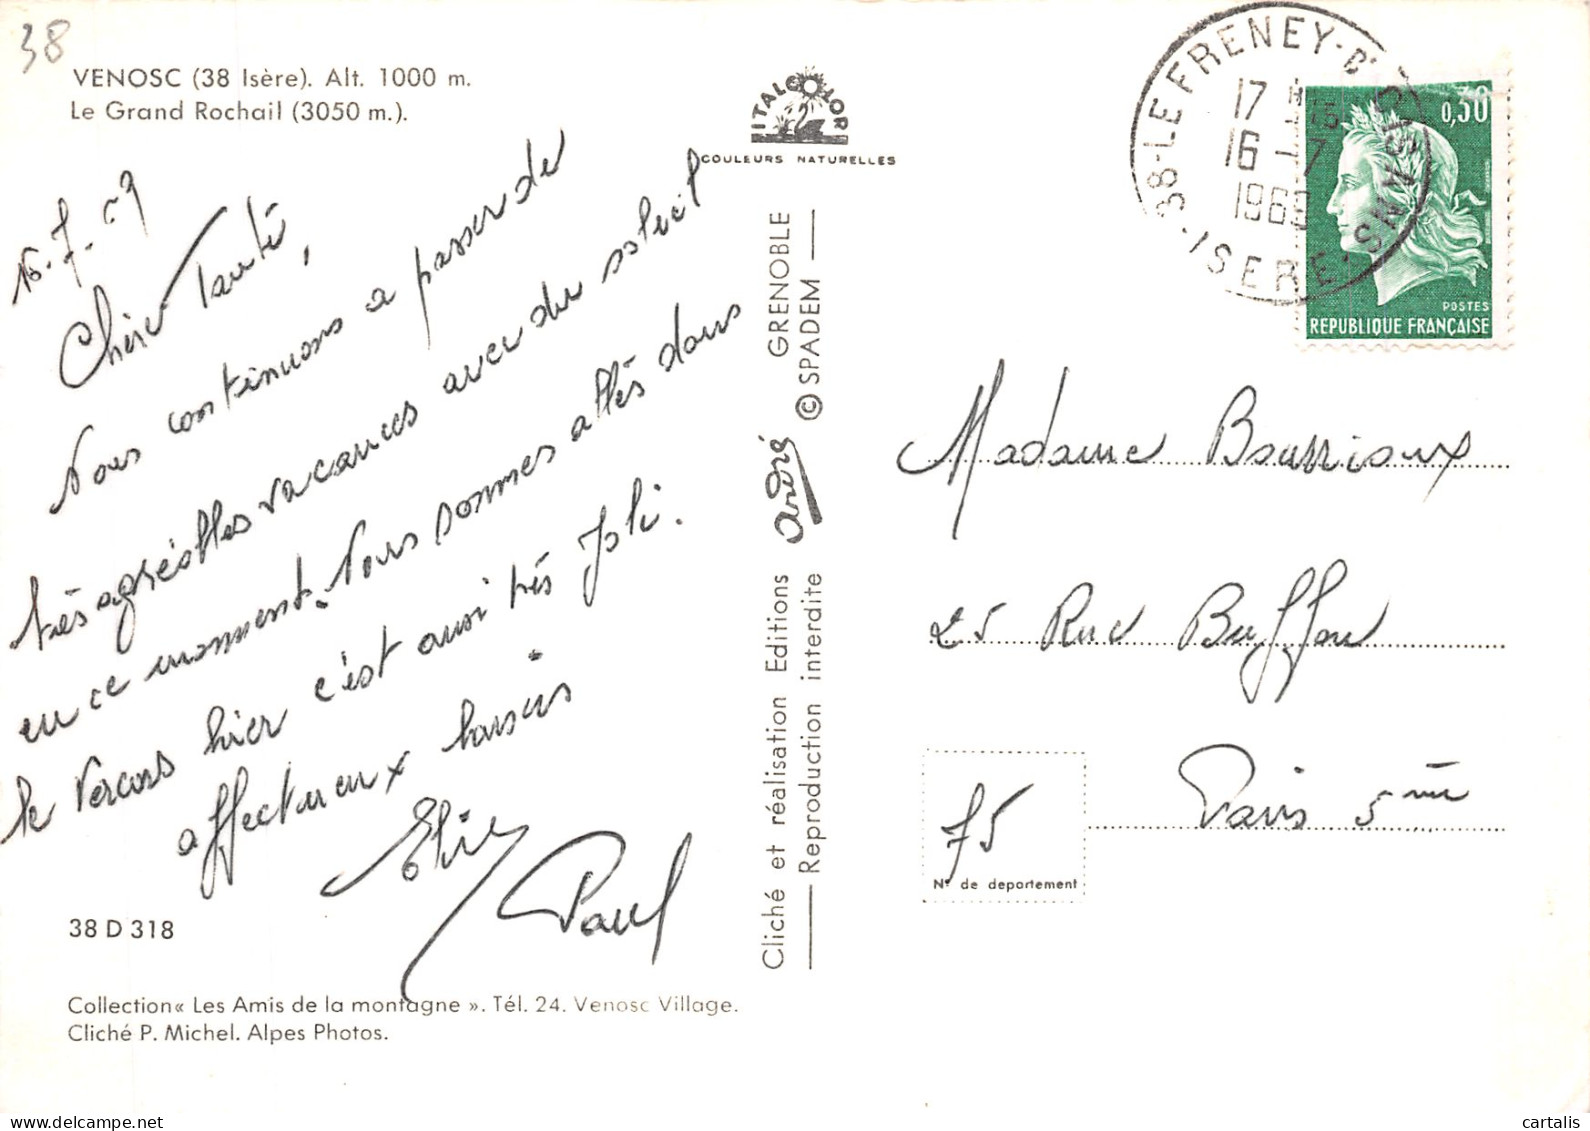 38
VENOSC (38 Isère). Alt. 1000 m.
Le Grand Rochail (3050 m.).
ITALCOLOR
COULEURS NATURELLES
16.7.69
Chère Tante,
Nous continuons a passer de
très agréables vacances avec du soleil
en ce moment. Nous sommes allés dans
le Vercors hier c'est aussi très joli.
affectueux baisers
Paul
38 D 318
Collection « Les Amis de la montagne ». Tél. 24. Venosc Village.
Cliché P. Michel. Alpes Photos.
Cliché et réalisation Editions André GRENOBLE
Reproduction interdite © SPADEM
38-LE FRENEY-D'OISANS
17 H 15
16-7
1969
ISERE
0,30
POSTES
REPUBLIQUE FRANÇAISE
Madame Bourrioux
25 Rue Buffon
Paris 5ème
75
N° de departement
cartalis